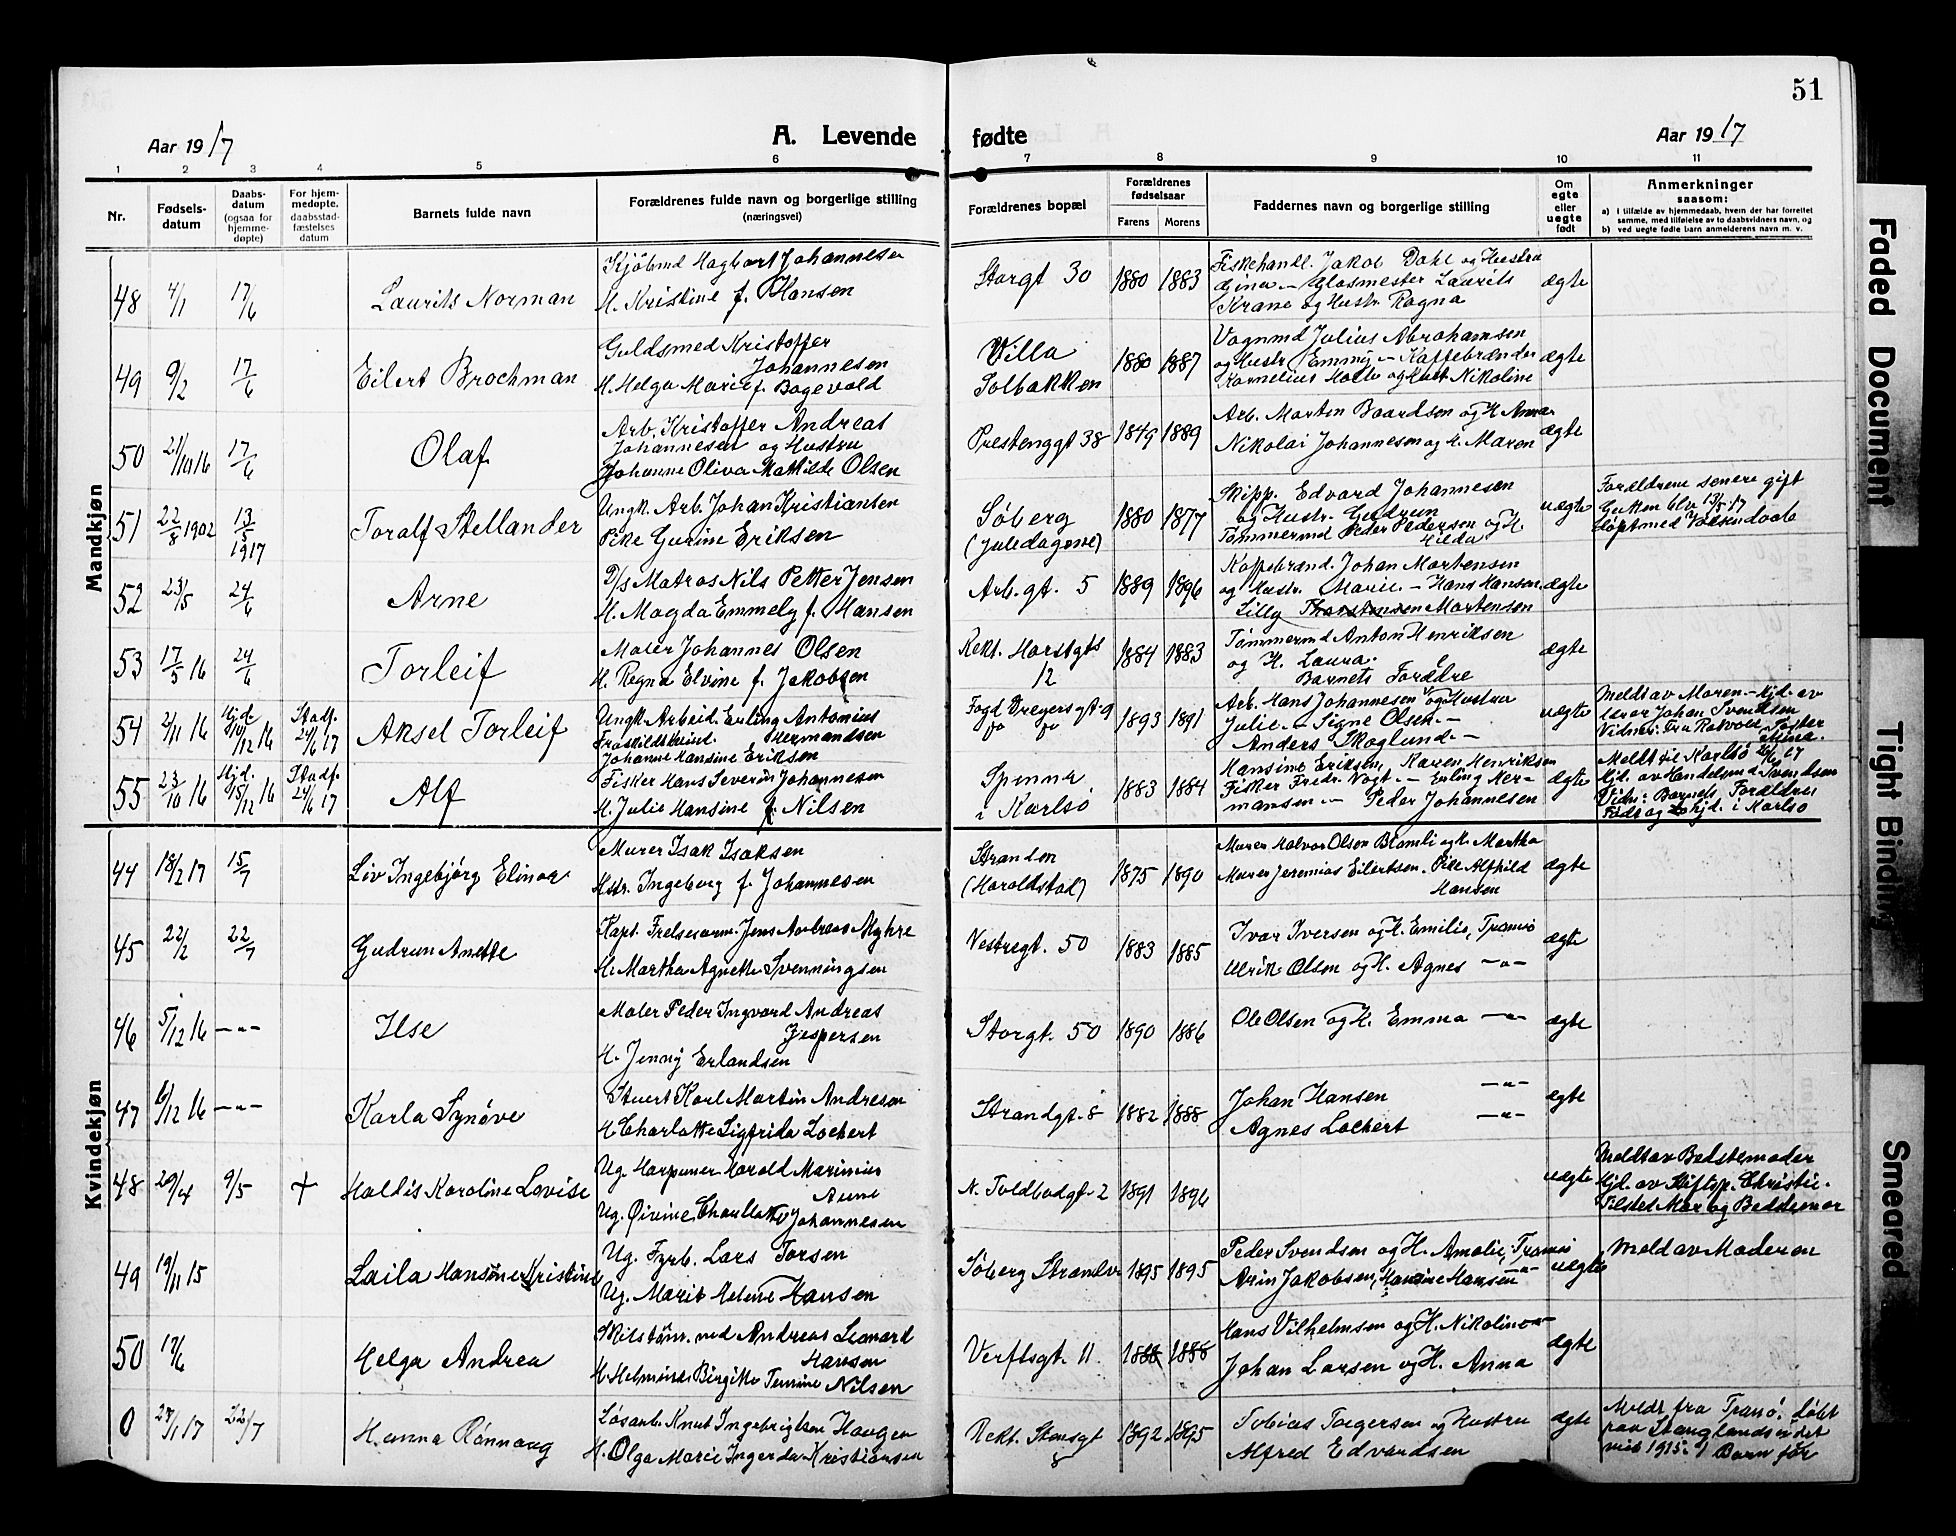 51
Aar 1917
A. Levende fødte
Aar 1917
1 2 3 4 5 6 7 8 9 10 11
Nr.
Fødsels-
datum
Daabs-
datum
(ogsaa for
hjemme-
døpte)
For hjem-
medøpte.
daabsstad-
fæstelses
datum
Barnets fulde navn
Forældrenes fulde navn og borgerlige stilling
(næringsvei)
Forældrenes bopæl
Forældrenes
fødselsaar
Farens
Morens
Faddernes navn og borgerlige stilling
Om
egte
eller
uegte
født
Anmerkninger
saasom:
a) I tilfælde av hjemmedaab, hvem der har forrettet
samme, med tilføielse av to daabsvidners navn, og
b) ved uegte fødte barn anmelderens navn m. v.
Mandkjøn
48 4/1 17/6 Laurits Norman
Kjøbmd Hagbart Johannesen
H. Kristine f. Hansen
Storgt 30 1880 1883
Fiskehandl. Jakob Dahl og Hustru
Gina - Glasmester Laurits
Krane og Hustr. Ragna
ægte
49 9/2 17/6 Eilert Brochman
Guldsmed Kristoffer
Johannesen
H. Helga Marie f. Bogevold
Villa
Solbakken
1880 1887
Vognmd Julius Abrahamsen
og Hustr. Emmy - Kaffebrænder
Kornelius Holte og Hust. Nikoline
ægte
50 21/10 16 17/6 Olaf
Arb. Kristoffer Andreas
Johannesen og Hustru
Johanne Oliva Mathilde Olsen
Prestenggt 38 1849 1889
Arb. Morten Baardsen og H. Anna
Nikolai Johannesen og H. Maren
ægte
51 22/8 1902 13/5 1917 Toralf Stellander
Ungk. Arb. Johan Kristiansen
Pike Gurine Eriksen
Søberg
(Juledagene)
1880 1877
Skipp. Edvard Johannesen
og Hustr. Gudrun
Tømmermd Peder Pedersen og H.
Hilda
uegte
Forældrene senere gift
Gutten blv 13/5 17
døpt med Voksendaab
52 23/5 24/6 Arne
D/s Matros Nils Petter Jensen
H. Magda Emmely f. Hansen
Arb. gt. 5 1889 1896
Kaffebrænd. Johan Mortensen
og Hustr. Marie - Hans Hansen
Lilly Thorstensen Mortensen
ægte
53 17/5 16 24/6 Torleif
Maler Johannes Olsen
H. Ragna Elvine f. Jakobsen
Rekt. Horstgt
12
1884 1883
Tømmermd Anton Henriksen
og H. Laura.
Barnets Forældre
ægte
54 2/11 16 Hjd. 12 16 Stadf. 24/6 17 Aksel Torleif
Ungk. Arbeid. Erling Antonius
Fraskildt Kvind. Hermandsen
Johanne Hansine Eriksen
Fogd Dreyersgt. 9
1893 1891
Arb. Hans Johannesen og Hustru
Julie - Signe Olsen -
Anders Skoglund -
uegte
Meldt av Moren - Hjd. av
lærer Johan Svendsen
Vidner: Fru Rakvold, Søster
Mina.
55 23/10 16 Hjd. 15/12 16 Stadf. 24/6 17 Alf
Fisker Hans Severin Johannesen
H. Julie Hansine f. Nilsen
Spenna
i Karlsø
1883 1884
Hansine Eriksen, Karen Henriksen
Fisker Fredr. Vogt. - Erling Her-
mansen - Peder Johannesen
ægte
Meldt til Karlsø 26/6 17
Hjd. av Handelsmd Svendsen
Vidn: Barnets Forældre
Født og hjd. i Karlsø
Kvindekjøn
44 18/2 17 15/7 Liv Ingebjørg Elinor
Murer Isak Isaksen
Hstr. Ingeborg f. Johannesen
Stranden
(Haroldstad)
1875 1890
Murer Halvor Olsen Blomli og H. Martha
Murer Jeremias Eilertsen. Pike Alfhild
Hansen
ægte
45 22/2 22/7 Gudrun Anette
Kapt. Frelsesarm. Jens Andreas Myhre
H. Martha Agnethe Svenningsen
Vestregt. 50 1883 1885
Ivar Iversen og H. Emilie, Tromsø
Ulrik Olsen og H. Agnes -"-
ægte
46 5/12 16 -"- Ilse
Maler Peder Ingvard Andreas
Jespersen
H. Jenny Erlandsen
Storgt. 50 1890 1886
Ole Olsen og H. Emma -"-
ægte
47 6/12 16 -"- Karla Synøve
Stuert Karl Martin Andresen
H Charlotte Sigfrida Lockert
Strandgt. 8 1882 1888
Johan Hansen -"-
Agnes Lockert -"-
ægte
48 29/4 9/5 + Haldis Karoline Lovise
Ug. Harpuner Harald Marinius
Aune
Ug. Øivine Charlotte Johannesen
N. Toldbodgt. 2 1891 1896
uegte
Meldt av Bedstemoder
Hjd. av Christie.
Tilsted Mor og Bedstemor
49 19/11 15 Laila Hansine Kristine
Ug. Fyrb. Lars Torsen
Ug. Marit Helene Hansen
Søberg Strandv. 1895 1895
Peder Svendsen og H. Amalie, Tromsø
Arin Jakobsen, Hansine Hansen -"-
uegte
Meld av Moderen
50 17/6 Helga Andrea
Andreas Leonard
Hansen
H Helmine Birgitte Nilsen
Verftsgt. 11. 1888 1888
Hans Vilhelmsen og H. Nikoline -"-
Johan Larsen og H. Anna
ægte
0 24/1 17 22/7 Hanna Rønnaug
Løsarb. Knut Ingebrigtsen Haugen
H. Olga Marie Ingerda Kristiansen
Rekt. Steensgt
8
1892 1895
Tobias Torgersen og Hustru
Alfred Edvardsen
ægte
Meldt fra Tranø. Døbt
paa Stonglandseidet
1915. 1 Barn før
Faded Document
Tight Binding
Smeared